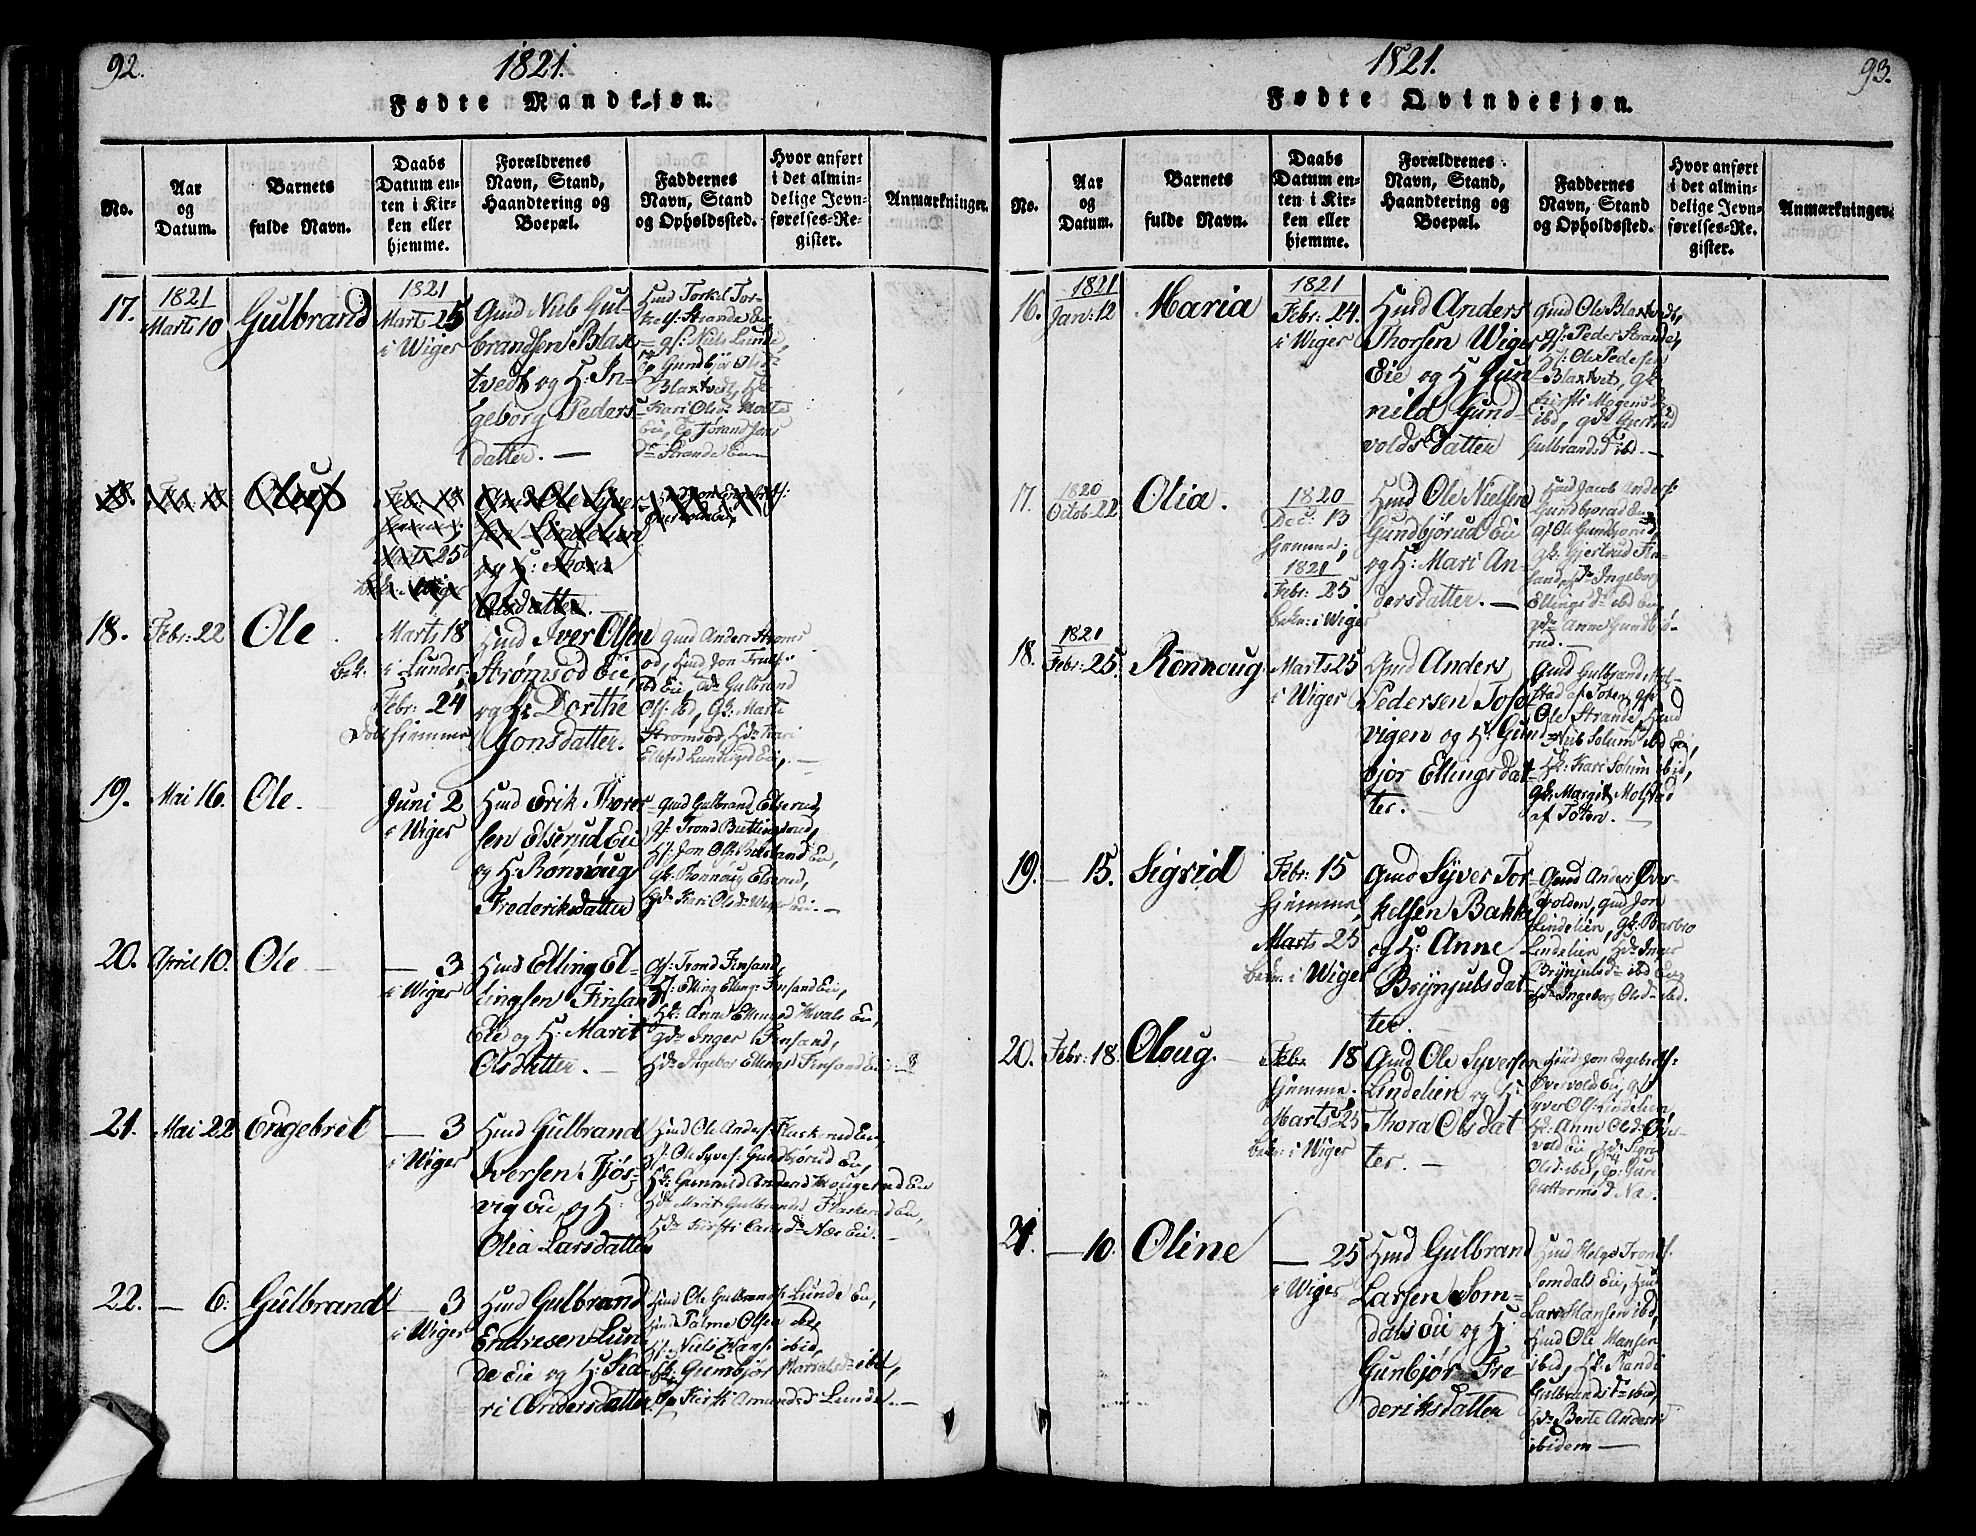 92.
1821.
Fødte Mandkjøn.
No.
Aar
og
Datum.
Barnets
fulde Navn.
Daabs
Datum en-
ten i Kir-
ken eller
hjemme.
Forældrenes
Navn, Stand,
Haandtering og
Boepæl.
Faddernes
Navn, Stand
og Opholdssted.
Hvor anført
i det almin-
delige Jevn-
førelses-Re-
gister.
Anmærkninger.
17.
1821
Marts 10
Gulbrand
1821
Marts 25
i Wiger
Gmd Niels Gul-
brandsen Blax-
tvedt og H: In-
geborg Peders
datter. —
Hmd Torkel Tor-
Strande Ei
gf: Niels Lunde,
Gundbjør Ols
Blaxtvedt,
Kari Olsd:
Ei, Jorand Jons
d: Strande Ei
18.
Febr: 22
Ole
Marts 18
bek. i Lunder,
Febr: 24
Døbt hjemme
Hmd Iver Olsen
Strømsod Eie,
og H: Dorthe
Jonsdatter.
gmd Anders Strøms
od, Hmd Jon
ibd Ei Gulbrand
Ols: ibd, Gk: Marte
Strømsod, Hd: Kari
19.
Mai 16.
Ole.
Juni 2
i Wiger
Hmd Erik Thorer
sen Elserud Ei
og H: Rønnoug
Frederiksdatter
gmd Gulbrand Elserud,
gf: Trond Buttingsrud,
Hf: Jon Ols: Ei,
Gk: Rønnoug Elserud,
Hd: Kari Olsd: Ei. —
20.
April 10.
Ole
— 3
i Wiger
Hmd Elling El-
lingsen Finsand
Eie og H: Marit
Olsdatter. —
gf: Trond Finsand,
Hf: Elling Elling: Finsand Ei,
Hk: Anne Ellingsd Hvals Ei,
gd: Inger Finsand,
Hd: Ingebor Ellings Finsand Ei
21.
Mai 22
Engebret
— 3
i Wiger
Hmd Gulbrand
Iversen Tjøs-
vig Eie, og H:
Olia Larsdatter
Hmd Ole Anders: Flaskerud Ei
Hf: Ole Syves: Gundbjørud Ei,
Hk: Gunnild Andersd Hougerud Ei
Hd: Marit Gulbrandsd Flaskerud Ei,
Hd: Kirsti Larsd: Næs Ei. —
22.
— 6.
Gulbrand
— 3
i Wiger
Hmd Gulbrand
Endresen Lun-
de Eie og H: Ka-
ri Andersdatter
Hmd Ole Gulbrands: Lunde Ei,
Hmd Palme Olsen ibd,
Hf: Niels Hans: ibid,
Hk: Gumbjør ibid,
Kirsti Amundsd Lunde. —
93.
1821.
Fødte Qvindekjøn.
No.
Aar
og
Datum.
Barnets
fulde Navn.
Daabs
Datum en-
ten i Kir-
ken eller
hjemme.
Forældrenes
Navn, Stand,
Haandtering og
Boepæl.
Faddernes
Navn, Stand
og Opholdssted.
Hvor anført
i det almin-
delige Jevn-
førelses-Re-
gister.
Anmærkninger.
16.
1821
Jan: 12
Maria
1821
Febr: 24.
i Wiger
Hmd Anders
Thorsen Wiger
Eie og H: Gun
nild Gund-
voldsdatter
gmd Ole Blaxtvedt,
gf: Peder Strande,
Hf: Ole Pedersen
Blaxtvet, gk:
Kirsti Mogens
ibd, gd: Gjertrud
Gulbrandsd ibd. —
17.
1820
Octob. 22
Olia.
1820
Dec: 13
hjemme,
1821
Febr: 25
bekr: i Wiger
Hmd Ole Nielsen
Gundbjørud Ei
og H: Mari An-
dersdatter. —
Hmd Jacob Anders:
Gundbjørud Ei
gf Ole Gundbjørud,
gk: Gjertrud Fin-
sand, Hd: Ingebor
Ellings d: ibd Ei
gd: Anne Gundbjø-
rud. —
18.
1821
Febr: 25.
Rønnoug
Marts 25
i Wiger
Gmd Anders
Pedersen Tosse
vigen og H: Gun
bjør Ellingsdat
ter. —
gmd Gulbrand Mol-
stad af Toten, gf:
Ole Strande, Hmd
Niels Solum ibd Ei,
Hk: Kari Solum ibid,
gk: Margit Molstad
af Toten. —
19.
— 15.
Sigrid
Febr: 15
hjemme,
Marts 25
bekr: i Wiger
Gmd Syver Tor
kelsen Bakke
og H: Anne
Brynjulsdat
ter.
Gmd Anders Øver-
volden, gmd Jon
Lindelien, gk: Barbro
Lindelien, Hd: Inger
Brynjulsd: ibd Ei
Hd: Ingeborg Olsd: ibd.
20.
Febr: 18.
Oloug.
Febr 18
hjemme,
Marts 25
bekr: i Wiger
Gmd Ole Syversen
Lindelien og H:
Thora Olsdat
ter. —
Hmd Jon Engebretf:
Øvervold Ei, gf:
Syver Ols: Lindelien,
Hk: Anne Olsd: Øver-
vold Ei, Hd: Sigri
Olsd: ibid,
Guttormsd Næs.
21.
— 10.
Oline
— 25
i Wiger
Hmd Gulbrand
Larsen Som-
dals Eie og H:
Gunbjør Fre-
deriksdatter
Hmd Helge Tronds:
Somdals Ei, Hmd
Lars Hansen ibd,
Hmd Ole Hansen
ibid, Hk: Randi
Gulbrandsd: ibid,
Hd: Berte Andersd
ibidem —